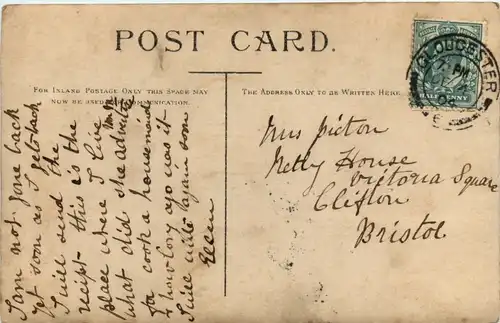 POST CARD.
FOR INLAND POSTAGE ONLY THIS SPACE MAY
NOW BE USED FOR COMMUNICATION.
THE ADDRESS ONLY TO BE WRITTEN HERE.
HALF PENNY
GLOUCESTER
I am not gone back
yet soon as I gets back
I will send the
recipt this is the
place where I live
what did she advertise
for cook & housemaid
& how long ago was it
I will write again soon
Ellen
Mrs Picton
Netly House
Victoria Square
Clifton
Bristol